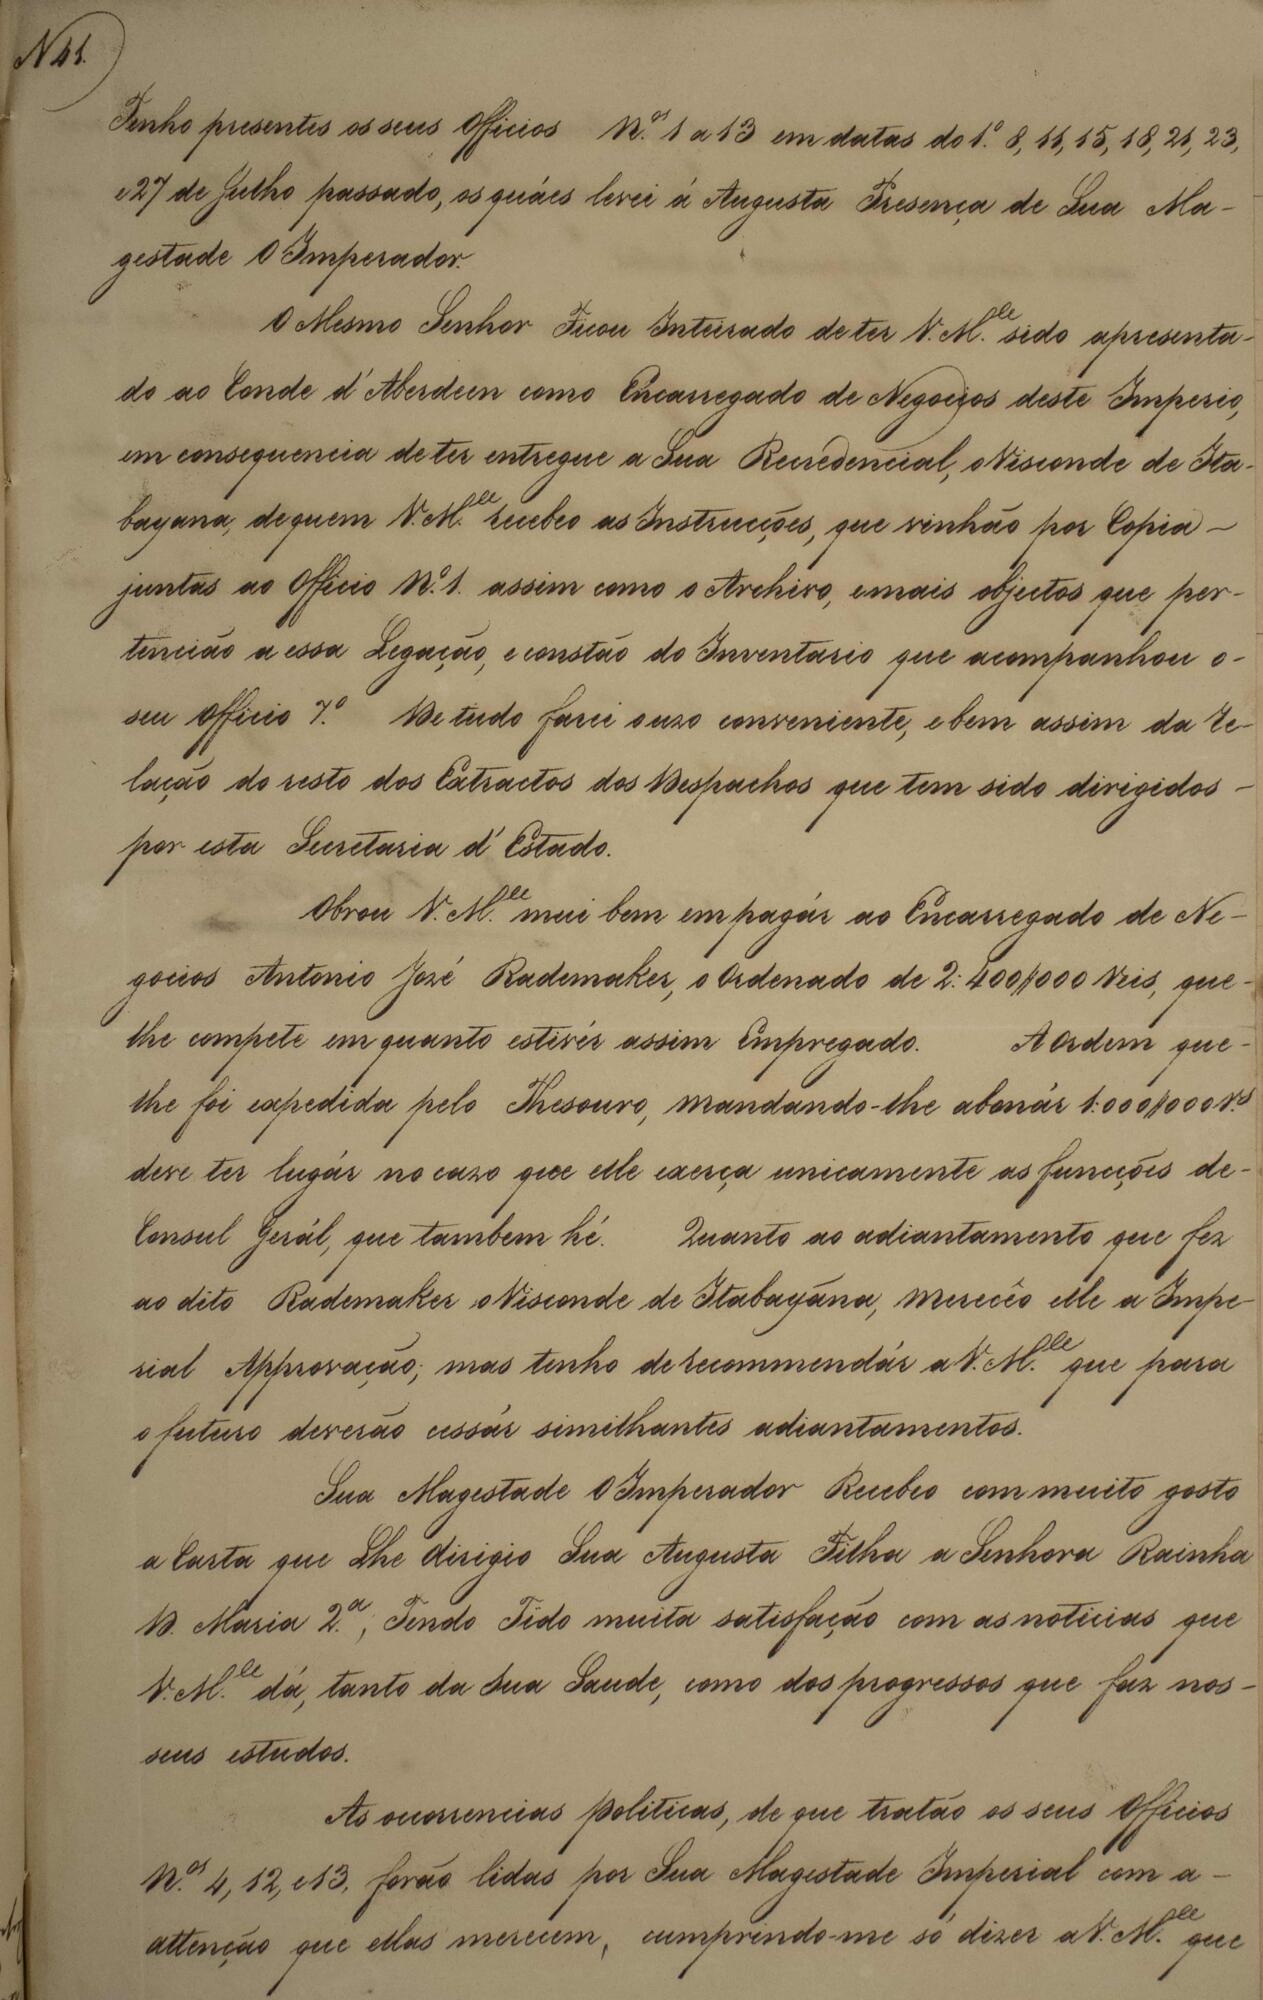 N 41.
Tenho presentes os seus Officios N.os 1 a 13 em datas do 1.º 8, 11, 15, 18, 21, 23,
e 27 de Julho passado, os quáes levei á Augusta Presença de Sua Ma-
gestade O Imperador.
O Mesmo Senhor Ficou Inteirado de ter V. M.ce sido apresenta-
do ao Conde d'Aberdeen como Encarregado de Negocios deste Imperio,
em consequencia de ter entregue a Sua Recredencial, o Visconde de Ita-
bayana, de quem V. M.ce recebeo as Instrucções, que vinhão por Copia -
juntas ao Officio N.º 1. assim como o Archivo, e mais objectos que per-
tencião a essa Legação, e constão do Inventario que acompanhou o -
seu Officio 7.º De tudo farei o uzo conveniente, e bem assim da Re-
lação do resto dos Extractos dos Despachos que tem sido dirigidos -
por esta Secretaria d'Estado.
Obrou V. M.ce mui bem em pagár ao Encarregado de Ne-
gocios Antonio Jozé Rademaker, o Ordenado de 2:400$000 Reis, que -
lhe compete em quanto estivér assim Empregado. A Ordem que -
lhe foi expedida pelo Thesouro, mandando-lhe abonár 1:000$000 R.s
deve ter lugár no cazo que elle exerça unicamente as funcções de -
Consul Gerál, que tambem hé. Quanto ao adiantamento que fez
ao dito Rademaker o Visconde de Itabayána, merecêo elle a Impe-
rial Approvação; mas tenho de recommendár a V. M.ce que para
o futuro deverão cessár similhantes adiantamentos.
Sua Magestade O Imperador Recebeo com muito gosto
a Carta que Lhe dirigio Sua Augusta Filha a Senhora Rainha
D. Maria 2.ª, Tendo Tido muita satisfação com as noticias que
V. M.ce dá, tanto da Sua Saude, como dos progressos que faz nos -
seus estudos.
As occorrencias politicas, de que tratão os seus Officios
N.os 4, 12, e 13, forão lidas por Sua Magestade Imperial com a -
attenção que ellas merecem, cumprindo-me só dizer a V. M.ce que